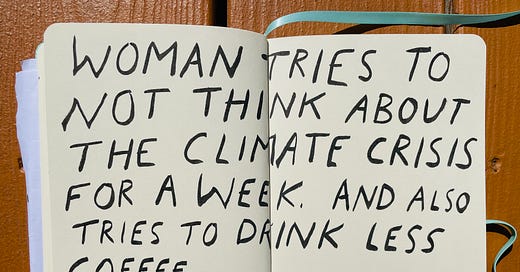 WOMAN TRIES TO
NOT THINK ABOUT
THE CLIMATE CRISIS
FOR A WEEK. AND ALSO
TRIES TO DRINK LESS
COFFEE